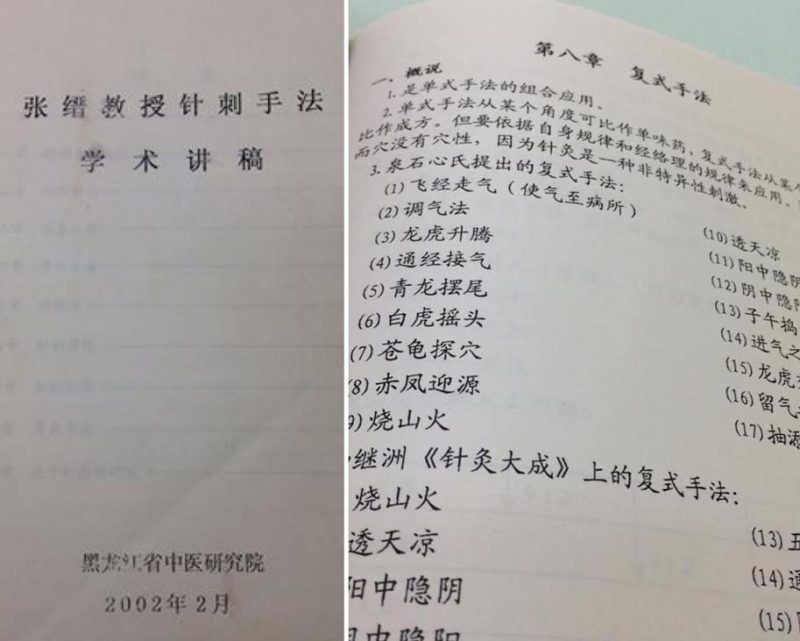 张缙教授针刺手法
学术讲稿
黑龙江省中医研究院
2002年2月
第八章 复式手法
一、概说
1.是单式手法的组合应用、
2.单式手法从某个角度可比作单味药，复式手法从某个
比作成方。但要依据自身规律和经络理的规律来应用、
而穴没有穴性，因为针灸是一种非特异性刺激、
3.泉石心氏提出的复式手法：
(1)飞经走气（使气至病所）
(2)调气法
(3)龙虎升腾
(4)通经接气
(5)青龙摆尾
(6)白虎摇头
(7)苍龟探穴
(8)赤凤迎源
9)烧山火
(10)透天凉
(11)阳中隐阴
(12)阴中隐阳
(13)子午捣
(14)进气之
(15)龙虎
(16)留气
(17)抽添
继洲《针灸大成》上的复式手法：
烧山火
透天凉
阳中隐阴
阴中隐阳
(13)五
(14)通
(15)